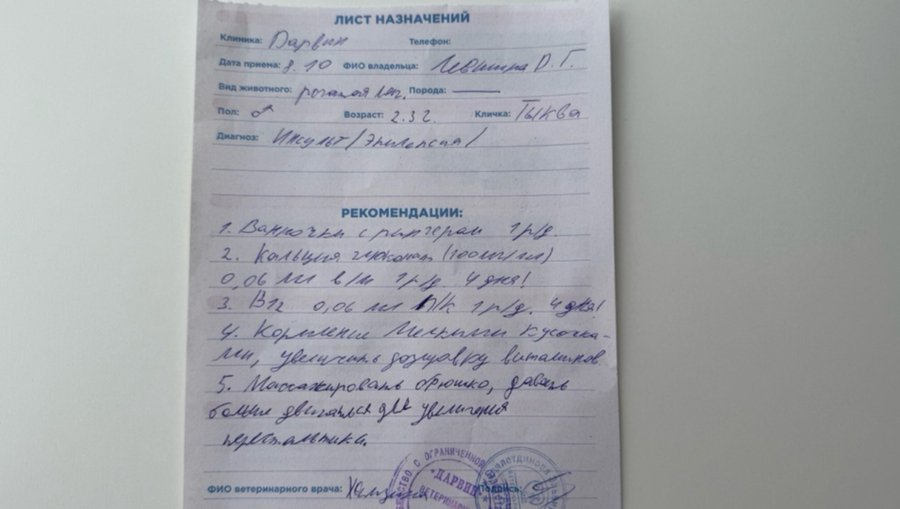 ЛИСТ НАЗНАЧЕНИЙ
Клиника: Дарвин Телефон:
Дата приема: 8.10 ФИО владельца: Левшина Р. Г.
Вид животного: рогатая Порода: —
Пол: ♂ Возраст: 2.3 г. Кличка: Тыква
Диагноз: Инсульт/Эпилепсия/
РЕКОМЕНДАЦИИ:
1. Ванночки с рингером 1 р/д
2. Кальция глюконат (100мг/мл)
0,06 мл в/м 1 р/д 4 дня!
3. B12 0,06 мл П/К 1 р/д. 4 дня!
4. Кормление мелкими кусочка-
ми, увеличить дозировку витаминов.
5. Массажировать брюшко, давать
больше двигаться для увеличения
перистальтики.
ФИО ветеринарного врача: Подпись:
ОБЩЕСТВО С ОГРАНИЧЕННОЙ
"ДАРВИН"